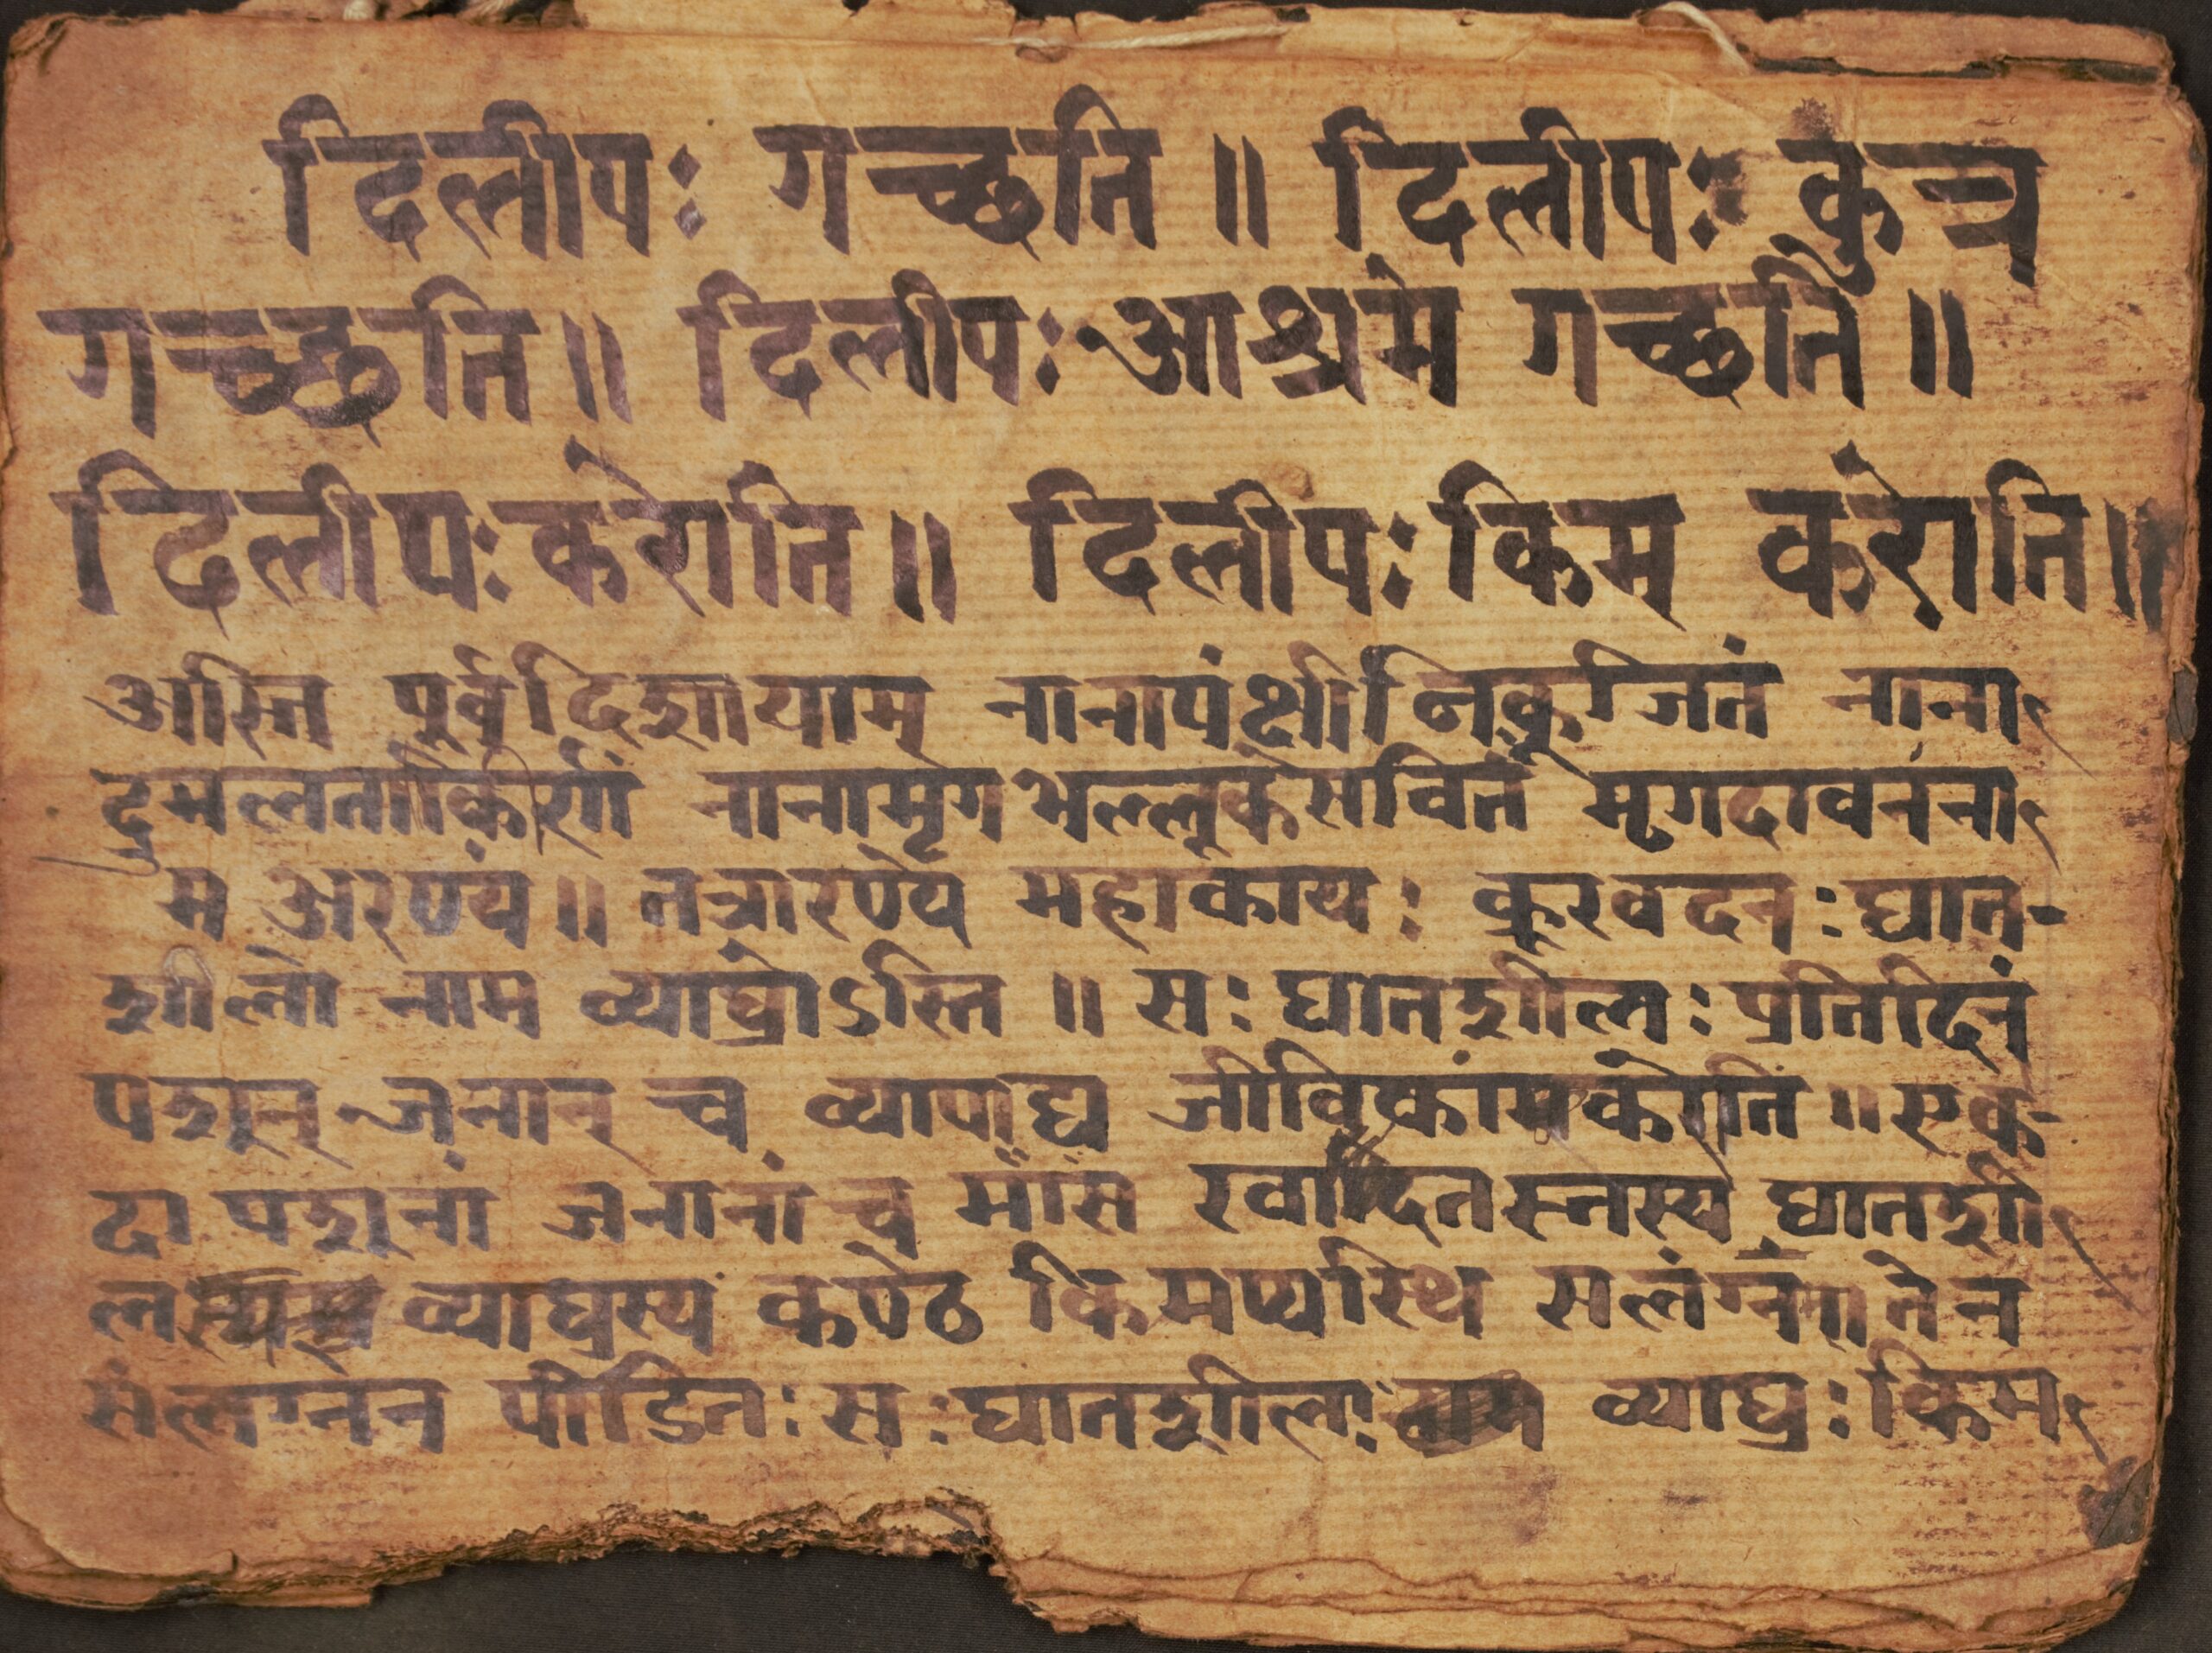 दिलीपः गच्छति ॥ दिलीपः कुत्र
गच्छति ॥ दिलीपः आश्रमे गच्छति ॥
दिलीपः करोति ॥ दिलीपः किम् करोति ॥
अस्ति पुर्वदिशायाम् नानापंक्षीनिकुजितं नाना
द्रुमलताकिर्णं नानामृगभल्लुकसेवितं मृगदावनंना
म अरण्यं ॥ तत्रारण्ये महाकायः क्रुरवदनः घात-
शीलो नाम व्याघ्रोऽस्ति ॥ सः घातशीलः प्रतिदिनं
पशुन् जनान् च व्यापाद्य जीविकांमकरोति ॥ एक-
दा पशुनां जनानां च मांसं खादितस्तस्य घातशी
लस्य व्याघ्रस्य कण्ठे किमप्यस्थि संलग्नं। तेन
संलग्नेन पीडितः सः घातशीलः व्याघ्रः किम